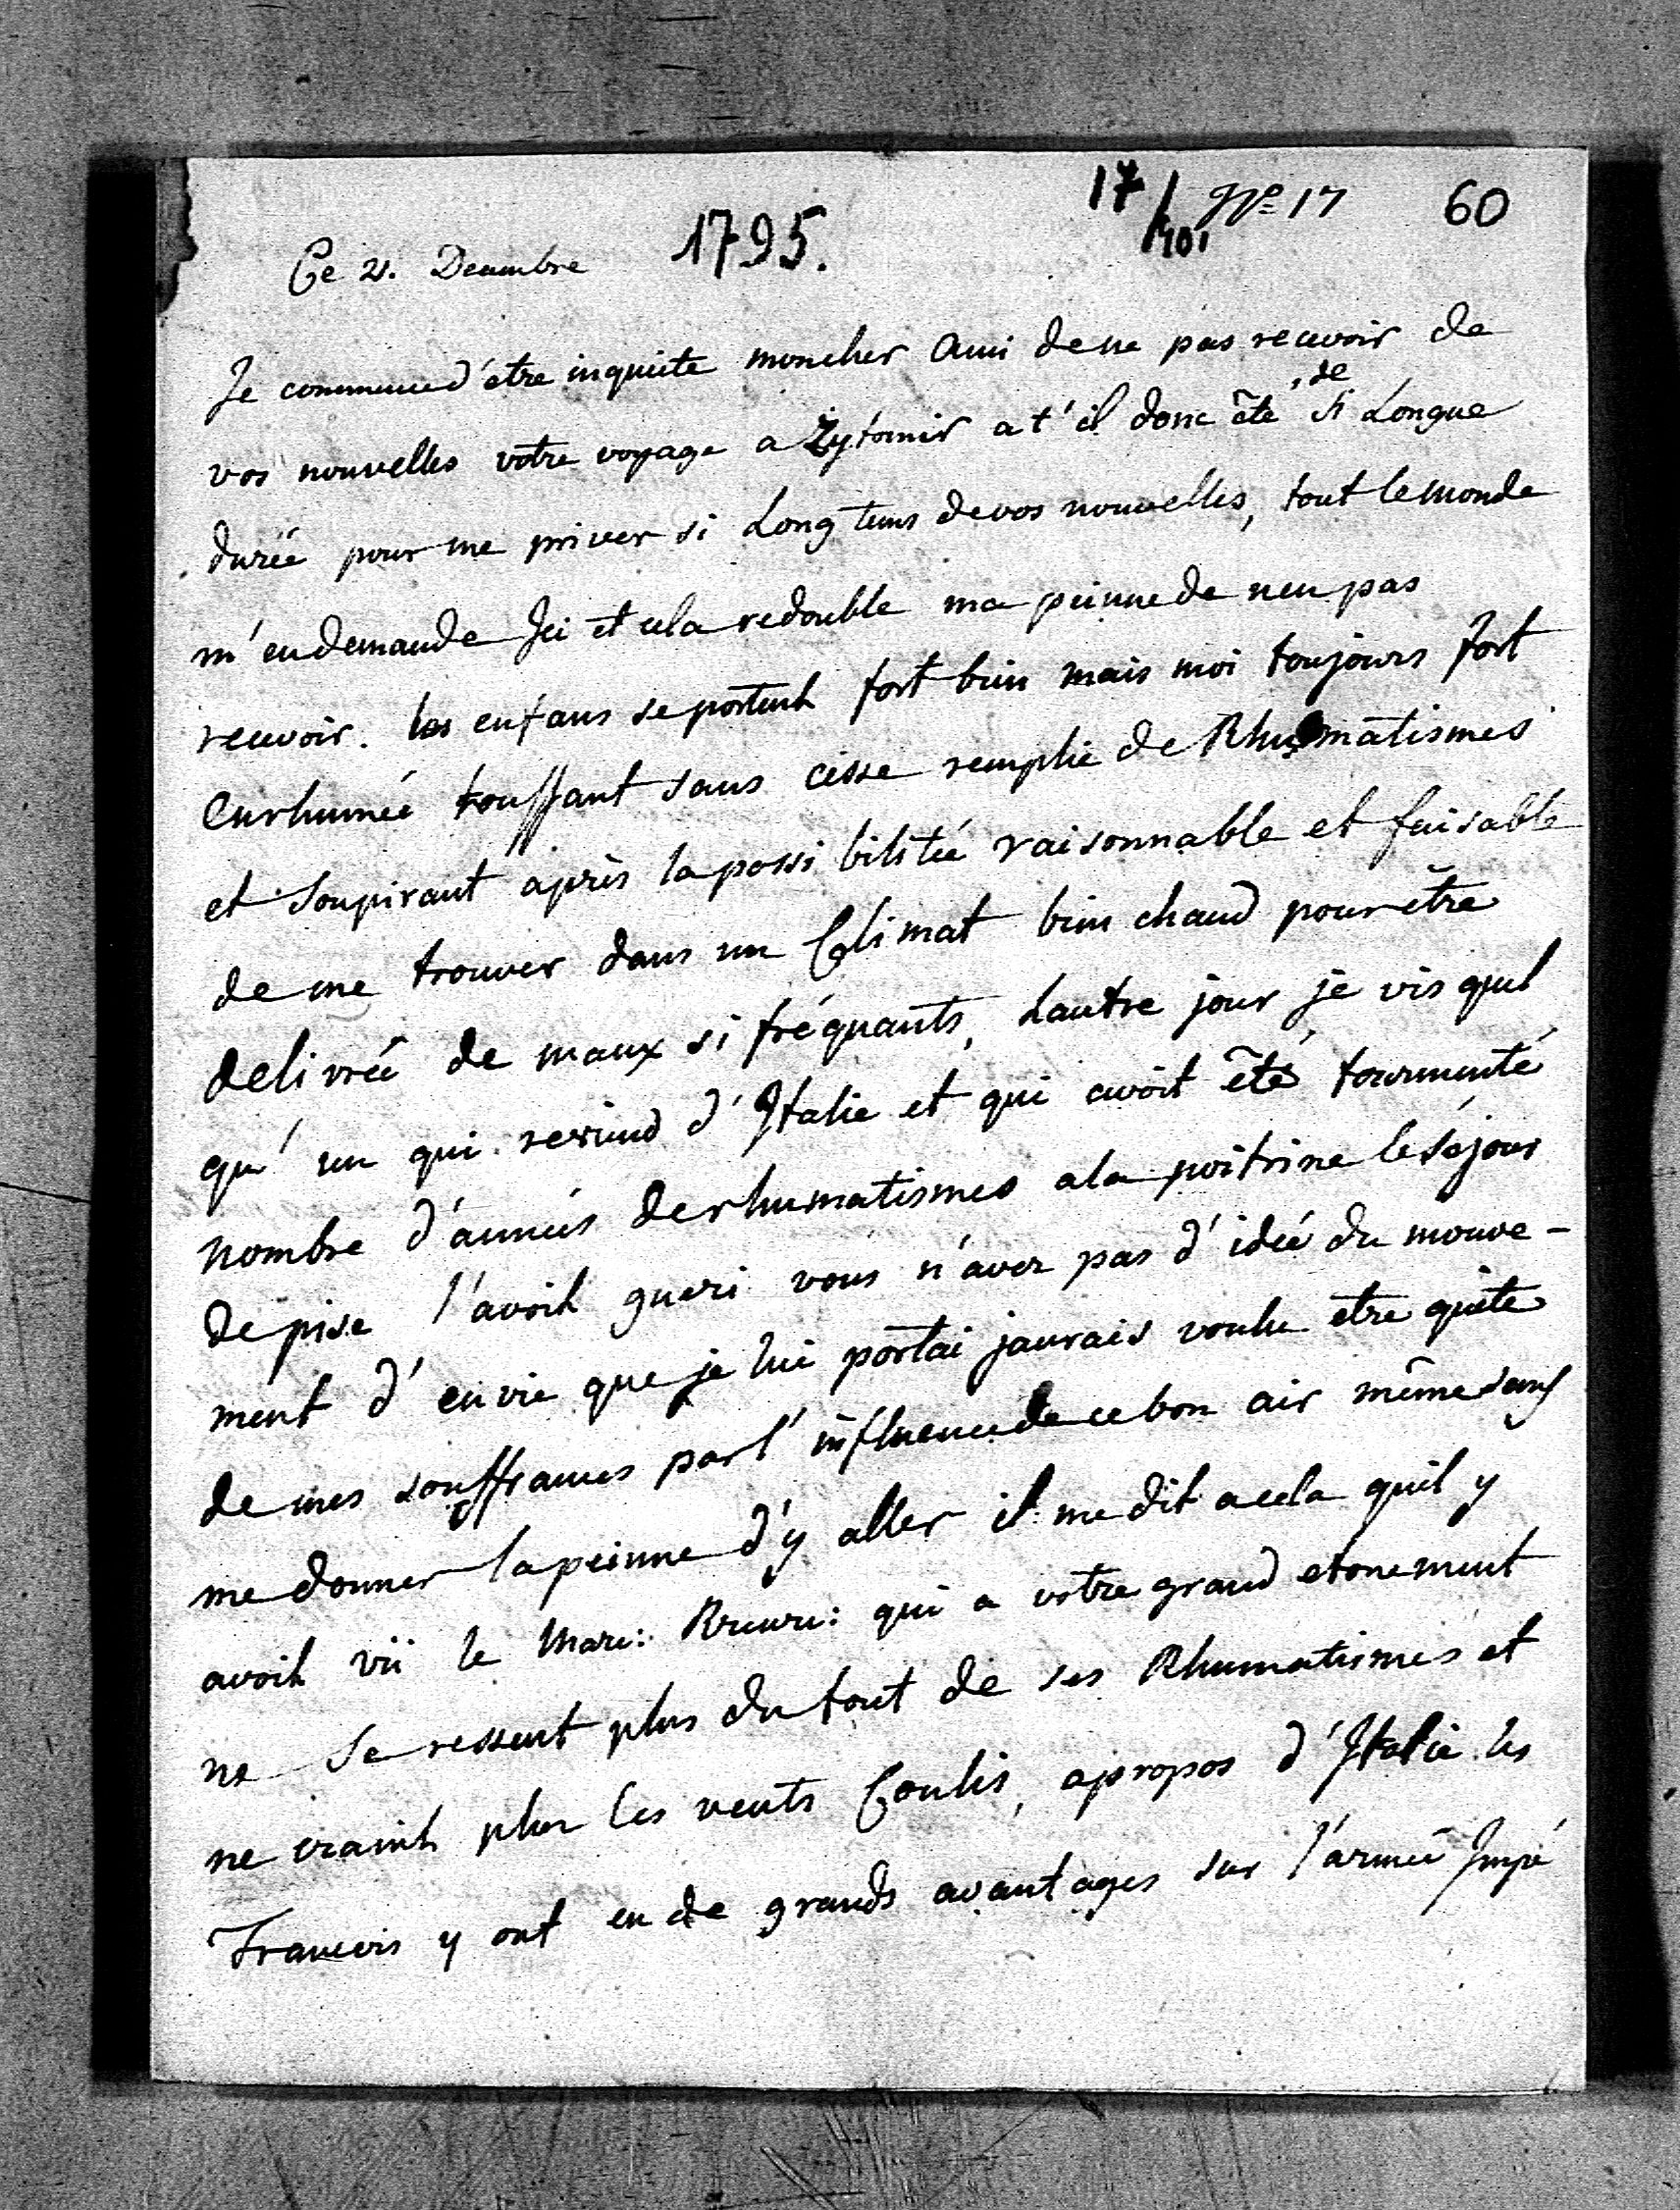 17/401 Nº 17 60
Ce 21. Decembre 1795.
Je commence d'etre inquiete moncher Ami dene pas recevoir de
vos nouvelles votre voyage a Zytomir at'il donc êté ,de Si Longue
durée pour me priver si Long tems devos nouvelles, tout lemonde
m'endemande Ici et cela redouble ma peinne de nen pas
recevoir. les enfans se portent fort bien mais moi toujours fort
Enrhumée toussant sans cesse remplie de Rhumatismes
et Soupirant après la possi bilitée raisonnable et faisable
de me trouver dans un Climat bien chaud pour être
delivrée de maux si fréquants, Lautre jour je vis quel
qu'un qui reviend d'Italie et qui avoit êté tourmenté
nombre d'années derhumatismes ala poitrine leséjour
de pise l'avoit gueri vous n'avez pas d'idée du mouve-
ment d'envie que je lui portai jaurais voulu etre quite
de mes souffrances par l'influence de ce bon air même sans
me donner la peinne d'y aller il me dit acela quil y
avoit vü le Mare: qui a votre grand etonement
ne Se ressent plus du tout de ses Rhumatismes et
ne craint plus les vents Coulis, apropos d'Italie les
Francois y ont eu de grands avantages sur l'armée Impé